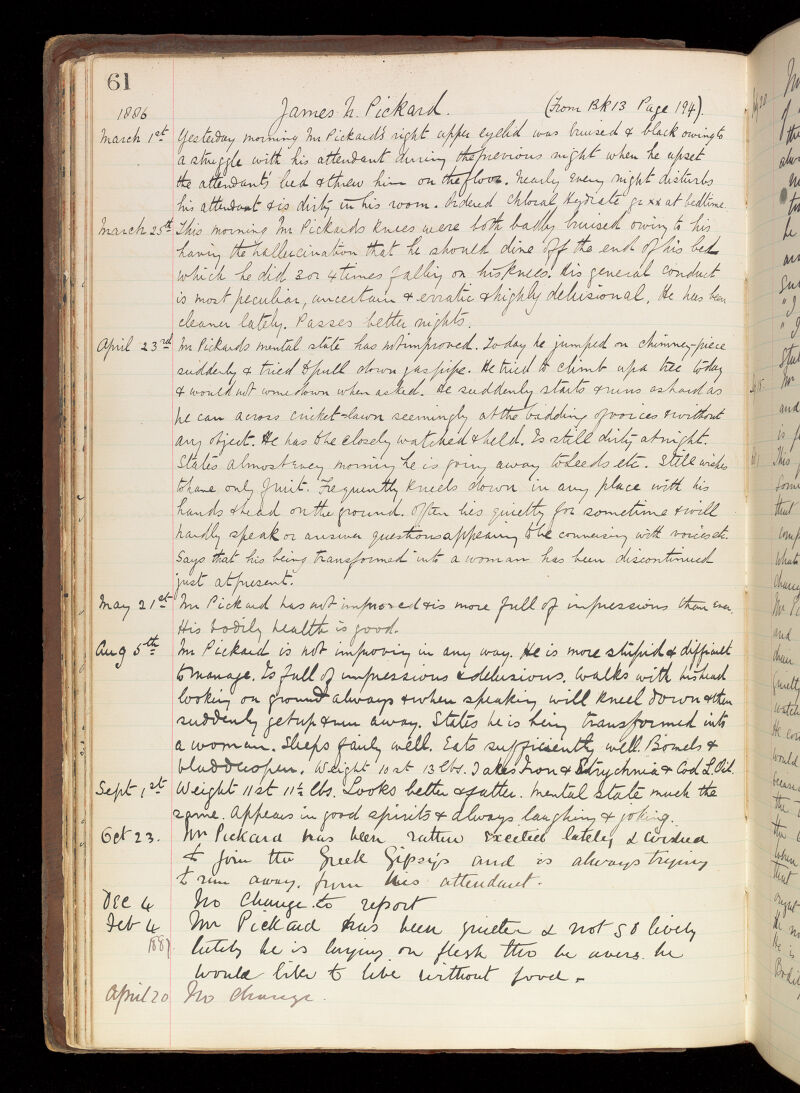 61
1886 James N. Pickard. (From Bk 13 Page 194).
March 1st Yesterday morning Mr Pickard's right upper eyelid was bruised & black owing to
a struggle with his attendant during the previous night when he upset
the attendants' bed & threw him on the floor. Nearly every night disturbs
his attendant & is dirty in his room. Ordered Chloral Hydrate gr xx at bedtime.
March 25th This morning Mr Pickards knees were both badly bruised owing to his
having the hallucination that he should dive off the end of his bed
which he did 3 or 4 times falling on his knees. His general conduct
is most peculiar, uncertain & erratic & highly delusional. He has been
cleaner lately. Passes better nights.
April 23rd Mr Pickards mental state has not improved. Today he jumped on chimney-piece
suddenly & tried to pull down gas pipe. He tried to climb up a tree today
& would not come down when asked. He suddenly starts & runs as hard as
he can across cricket-lawn seemingly at the bidding of voices & without
any object. He has to be closely watched & held. Is still dirty at night.
States almost every morning he is going away to Leeds etc. Still wishes
to have only fruit. Frequently kneels down in any place with his
hands & head on the ground. Often lies quietly for sometime & will
hardly speak or answer questions appearing to be conversing with voices etc.
Says that his being transformed into a woman has been discontinued
just at present.
May 21st Mr Pickard has not improved & is more full of impressions than ever.
His bodily health is good.
Aug 5th Mr Pickard is not improving in any way. He is more stupid & difficult
to manage. Is full of impressions & delusions. Walks with his head
looking on ground always & when speaking will kneel down & then
suddenly get up & run away. States he is being transformed into
a woman. Sleeps fairly well. Eats sufficiently well. Bowels &
bladder open. Weight 10 st 13 lbs. Takes Iron & Strychnia & Cod L. Oil.
Sept 1st Weight 11 st 11½ lbs. Looks better & fatter. Mental state much the
same. Appears in good spirits & always laughing & joking.
Oct 23. Mr Pickard has been rather excited lately & wished
to join the Greek Gipsys and is always trying
to run away from his attendant.
Dec 4 No change to report
Feb 4 Mr Pickard has been quieter & not so lively
1887 lately he is laying on flesh tho he avers he
would like to live without food.
April 20 No change.